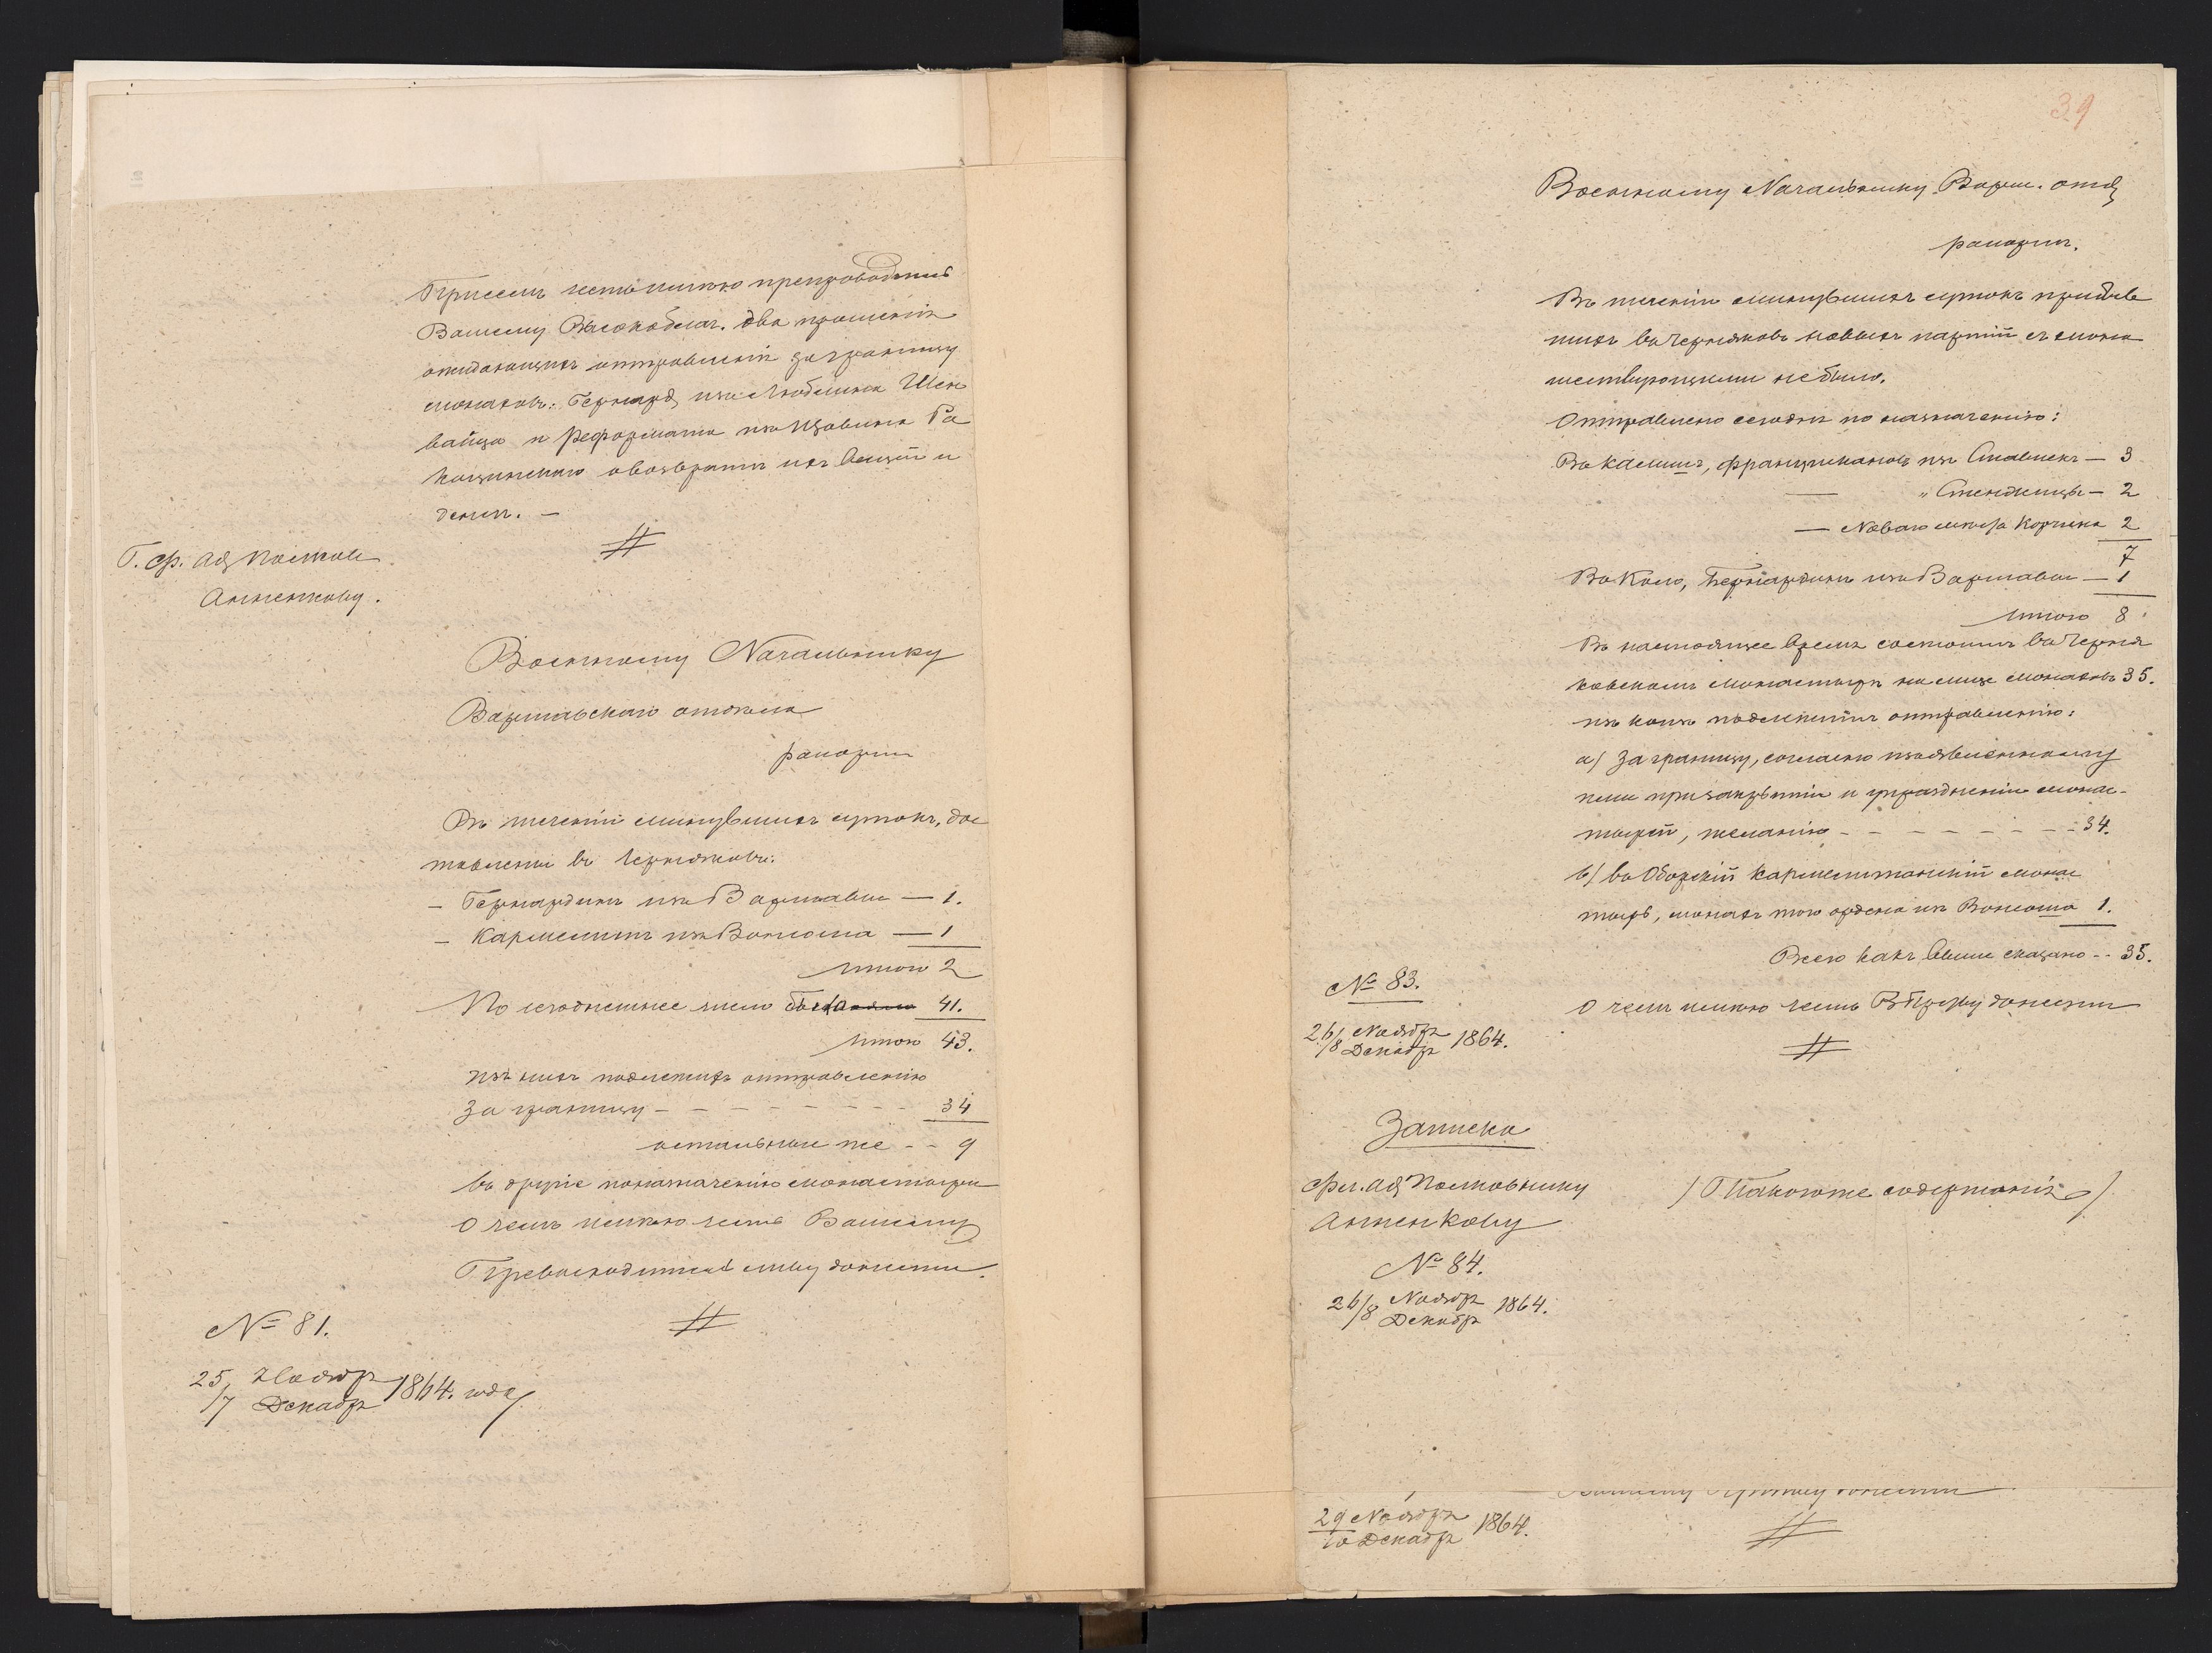 При семъ честь имѣю препроводить
Вашему Высокоблаг. два прошенія
ожидающихъ отправленія за границу
монаховъ: Бернард. изъ Люблина Шен
вайца и Реформата изъ
о возвратѣ ихъ вещей и
денегъ. —
Г. Фл. Ад. Полков
Анненкову.
Военному Начальнику
Варшавскаго отдѣла
рапортъ
Въ теченіи минувшихъ сутокъ, дос
тавлены въ Черняковъ:
— Бернардинъ изъ Варшавы — 1.
— Кармелитъ изъ Вонсоша — 1
Итого 2
По сегодняшнее число 41.
Итого 43.
Изъ нихъ подлежитъ отправленію
За границу - - - - - - - - 34
остальные же - - 9
въ другіе по назначенію монастыри
О чемъ имѣю честь Вашему
Превосходительству донести.
№ 81.
25/7 Ноябр Декабр 1864. года
39
Военному Начальнику Варш. отд
рапортъ.
Въ теченіи минувшихъ сутокъ прибыв
шихъ въ Черняковъ новыхъ партій съ мона
шествующими не было.
Отправлено сегодня по назначенію:
Въ Калишъ, францискановъ изъ Ставискъ — 3
— „ Стенжицы — 2
— Новаго мяста Корчина 2
7
Въ Коло, Бернардинъ изъ Варшавы — 1
Итого 8
Въ настоящее время состоитъ въ Черня
ковскомъ монастырѣ на лицо монаховъ 35.
изъ коихъ подлежитъ отправленію:
а) За границу, согласно изъявленному
ими при закрытіи и упраздненіи монас-
тырей, желанію - - - - - - - - 34.
б) въ Оборскій кармелитанскій монас
тырь, монахъ того ордена изъ Вонсоша 1.
Всего какъ выше сказано - - 35.
О чемъ имѣю честь В. Прву донести
№ 83.
26/8 Ноябр Декабр 1864.
Записка
Фл. Ад. Полковнику
Анненкову
/ Такого же содержанія /
№ 84.
26/8 Ноябр Декабр 1864.
Вашему донести
29 Ноябр
10 Декабр 1864.